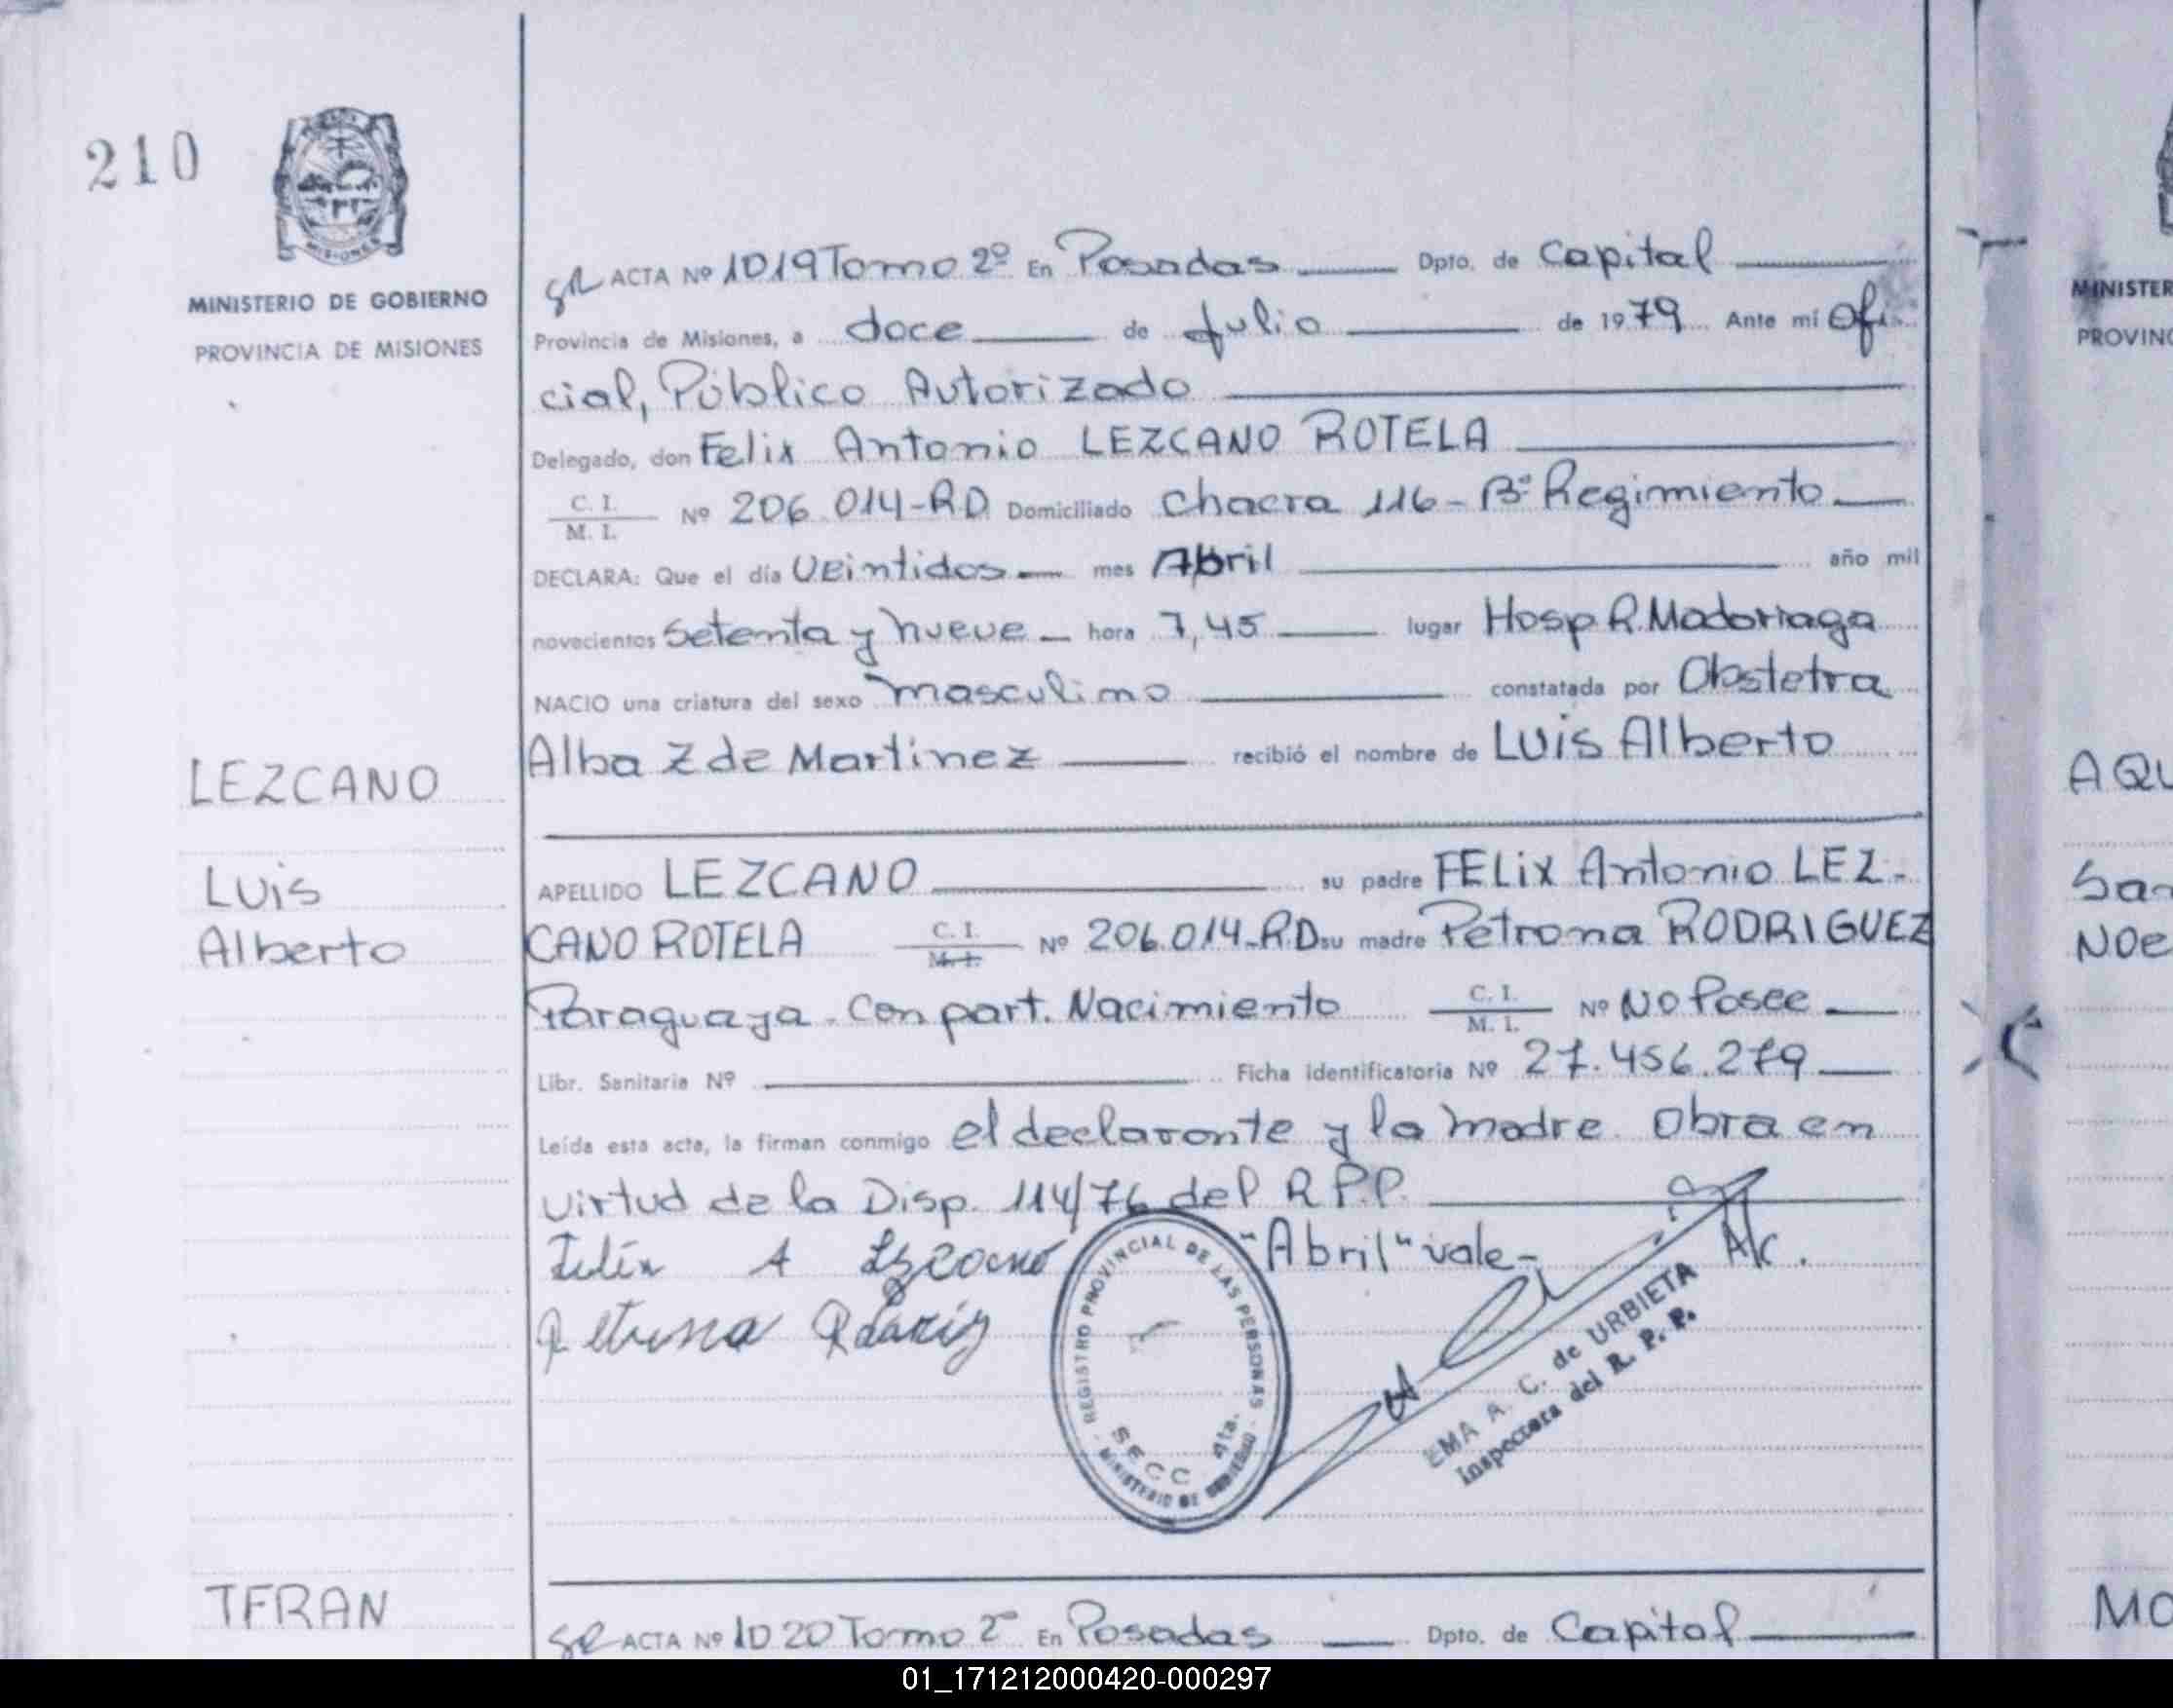 210
MINISTERIO DE GOBIERNO
PROVINCIA DE MISIONES
LEZCANO
Luis
Alberto
TERAN
ACTA Nº 1019 Tomo 2º En Posadas Dpto. de Capital
Provincia de Misiones, a doce de Julio de 1979 Ante mí Ofi
cial, Público Autorizado
Delegado, don Felix Antonio LEZCANO ROTELA
C. I.
M. I. Nº 206.014-RD Domiciliado Chacra 116 - Bº Regimiento
DECLARA: Que el día Veintidos mes Abril año mil
novecientos Setenta y nueve hora 7,45 lugar Hosp R. Madariaga
NACIO una criatura del sexo masculino constatada por Obstetra
Alba Z de Martinez recibió el nombre de Luis Alberto
APELLIDO LEZCANO su padre FELIX Antonio LEZ-
CANO ROTELA C. I.
M. I. Nº 206.014-RD su madre Petrona RODRIGUEZ
Paraguaya. Con part. Nacimiento C. I.
M. I. Nº No Posee
Libr. Sanitaria Nº Ficha identificatoria Nº 27.456.279
Leída esta acta, la firman conmigo el declarante y la madre. Obra en
virtud de la Disp. 114/76 del R.P.P.
"Abril" vale - A/c.
REGISTRO PROVINCIAL DE LAS PERSONAS
SECC 4ta.
MINISTERIO DE GOBIERNO
EMA A. C. de URBIETA
Inspectora del R. P. P.
ACTA Nº 1020 Tomo 2º En Posadas Dpto. de Capital
MINISTER
PROVINC
AQU
San
Noe
MO
01_171212000420-000297